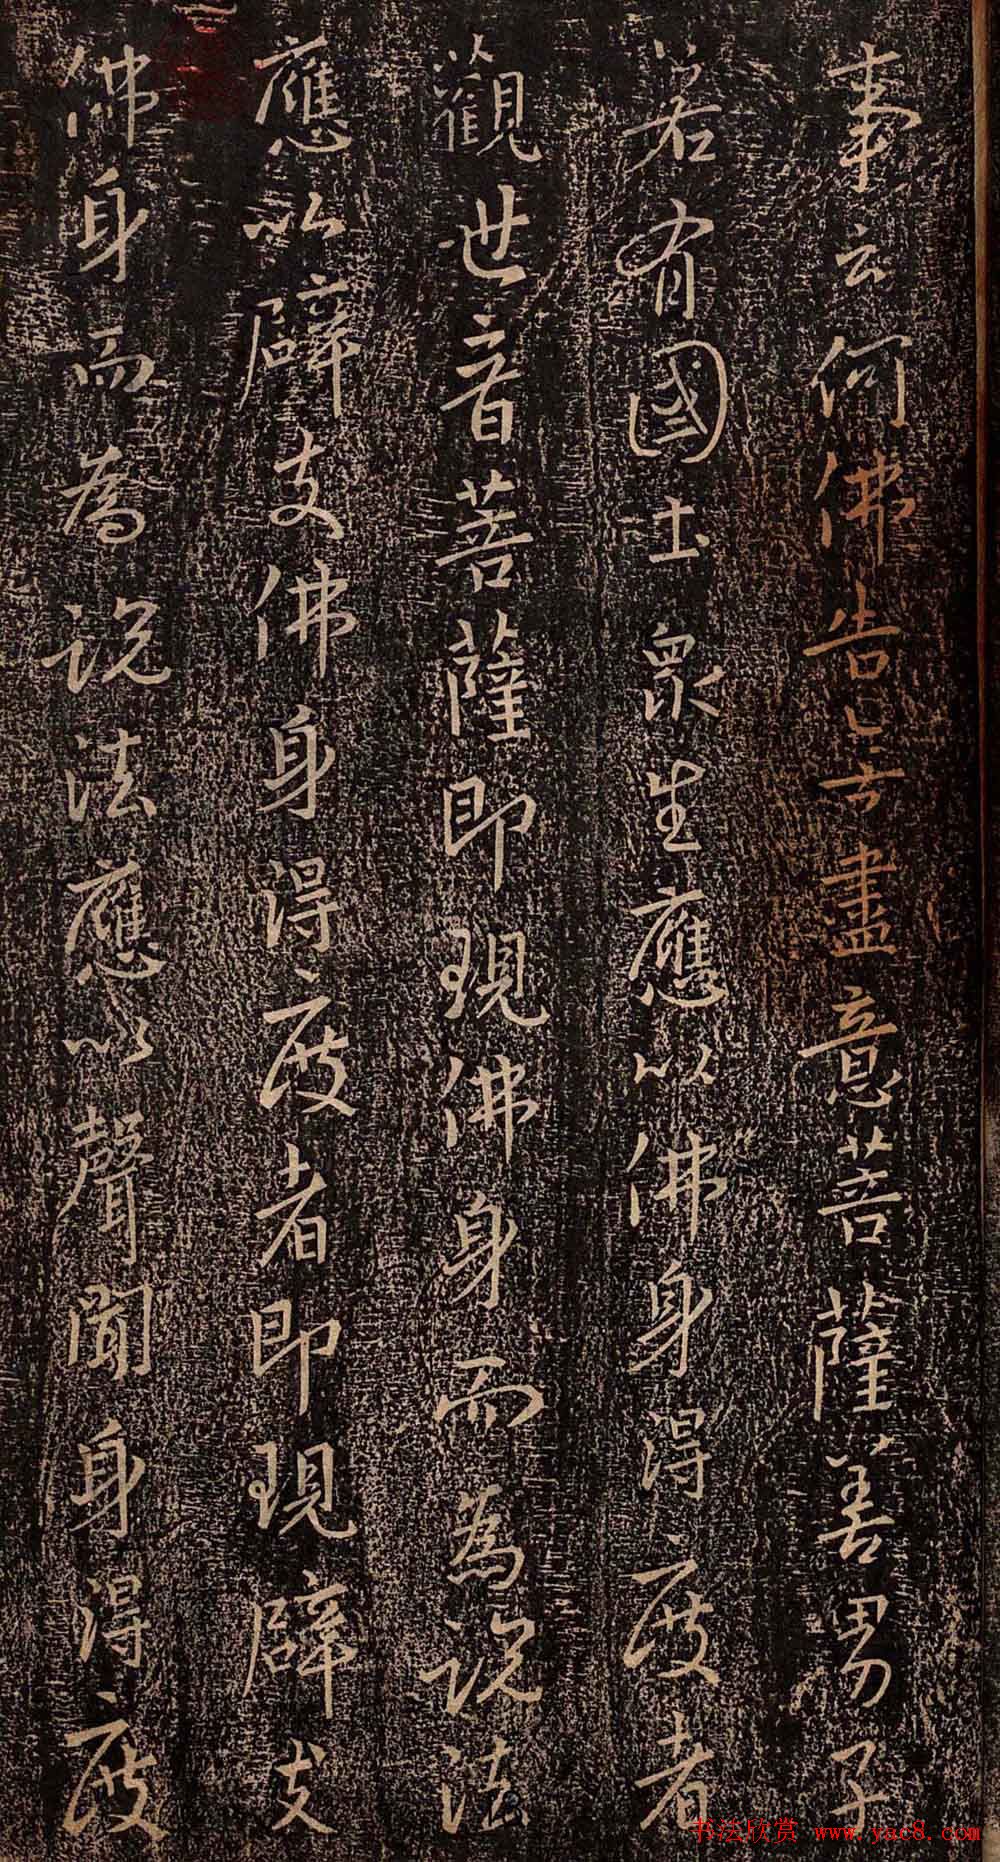 事云何佛告無盡意菩薩善男子
若有國土衆生應以佛身得度者
觀世音菩薩即現佛身而為說法
應以辟支佛身得度者即現辟支
佛身而為說法應以聲聞身得度
书法欣赏 www.yac8.com